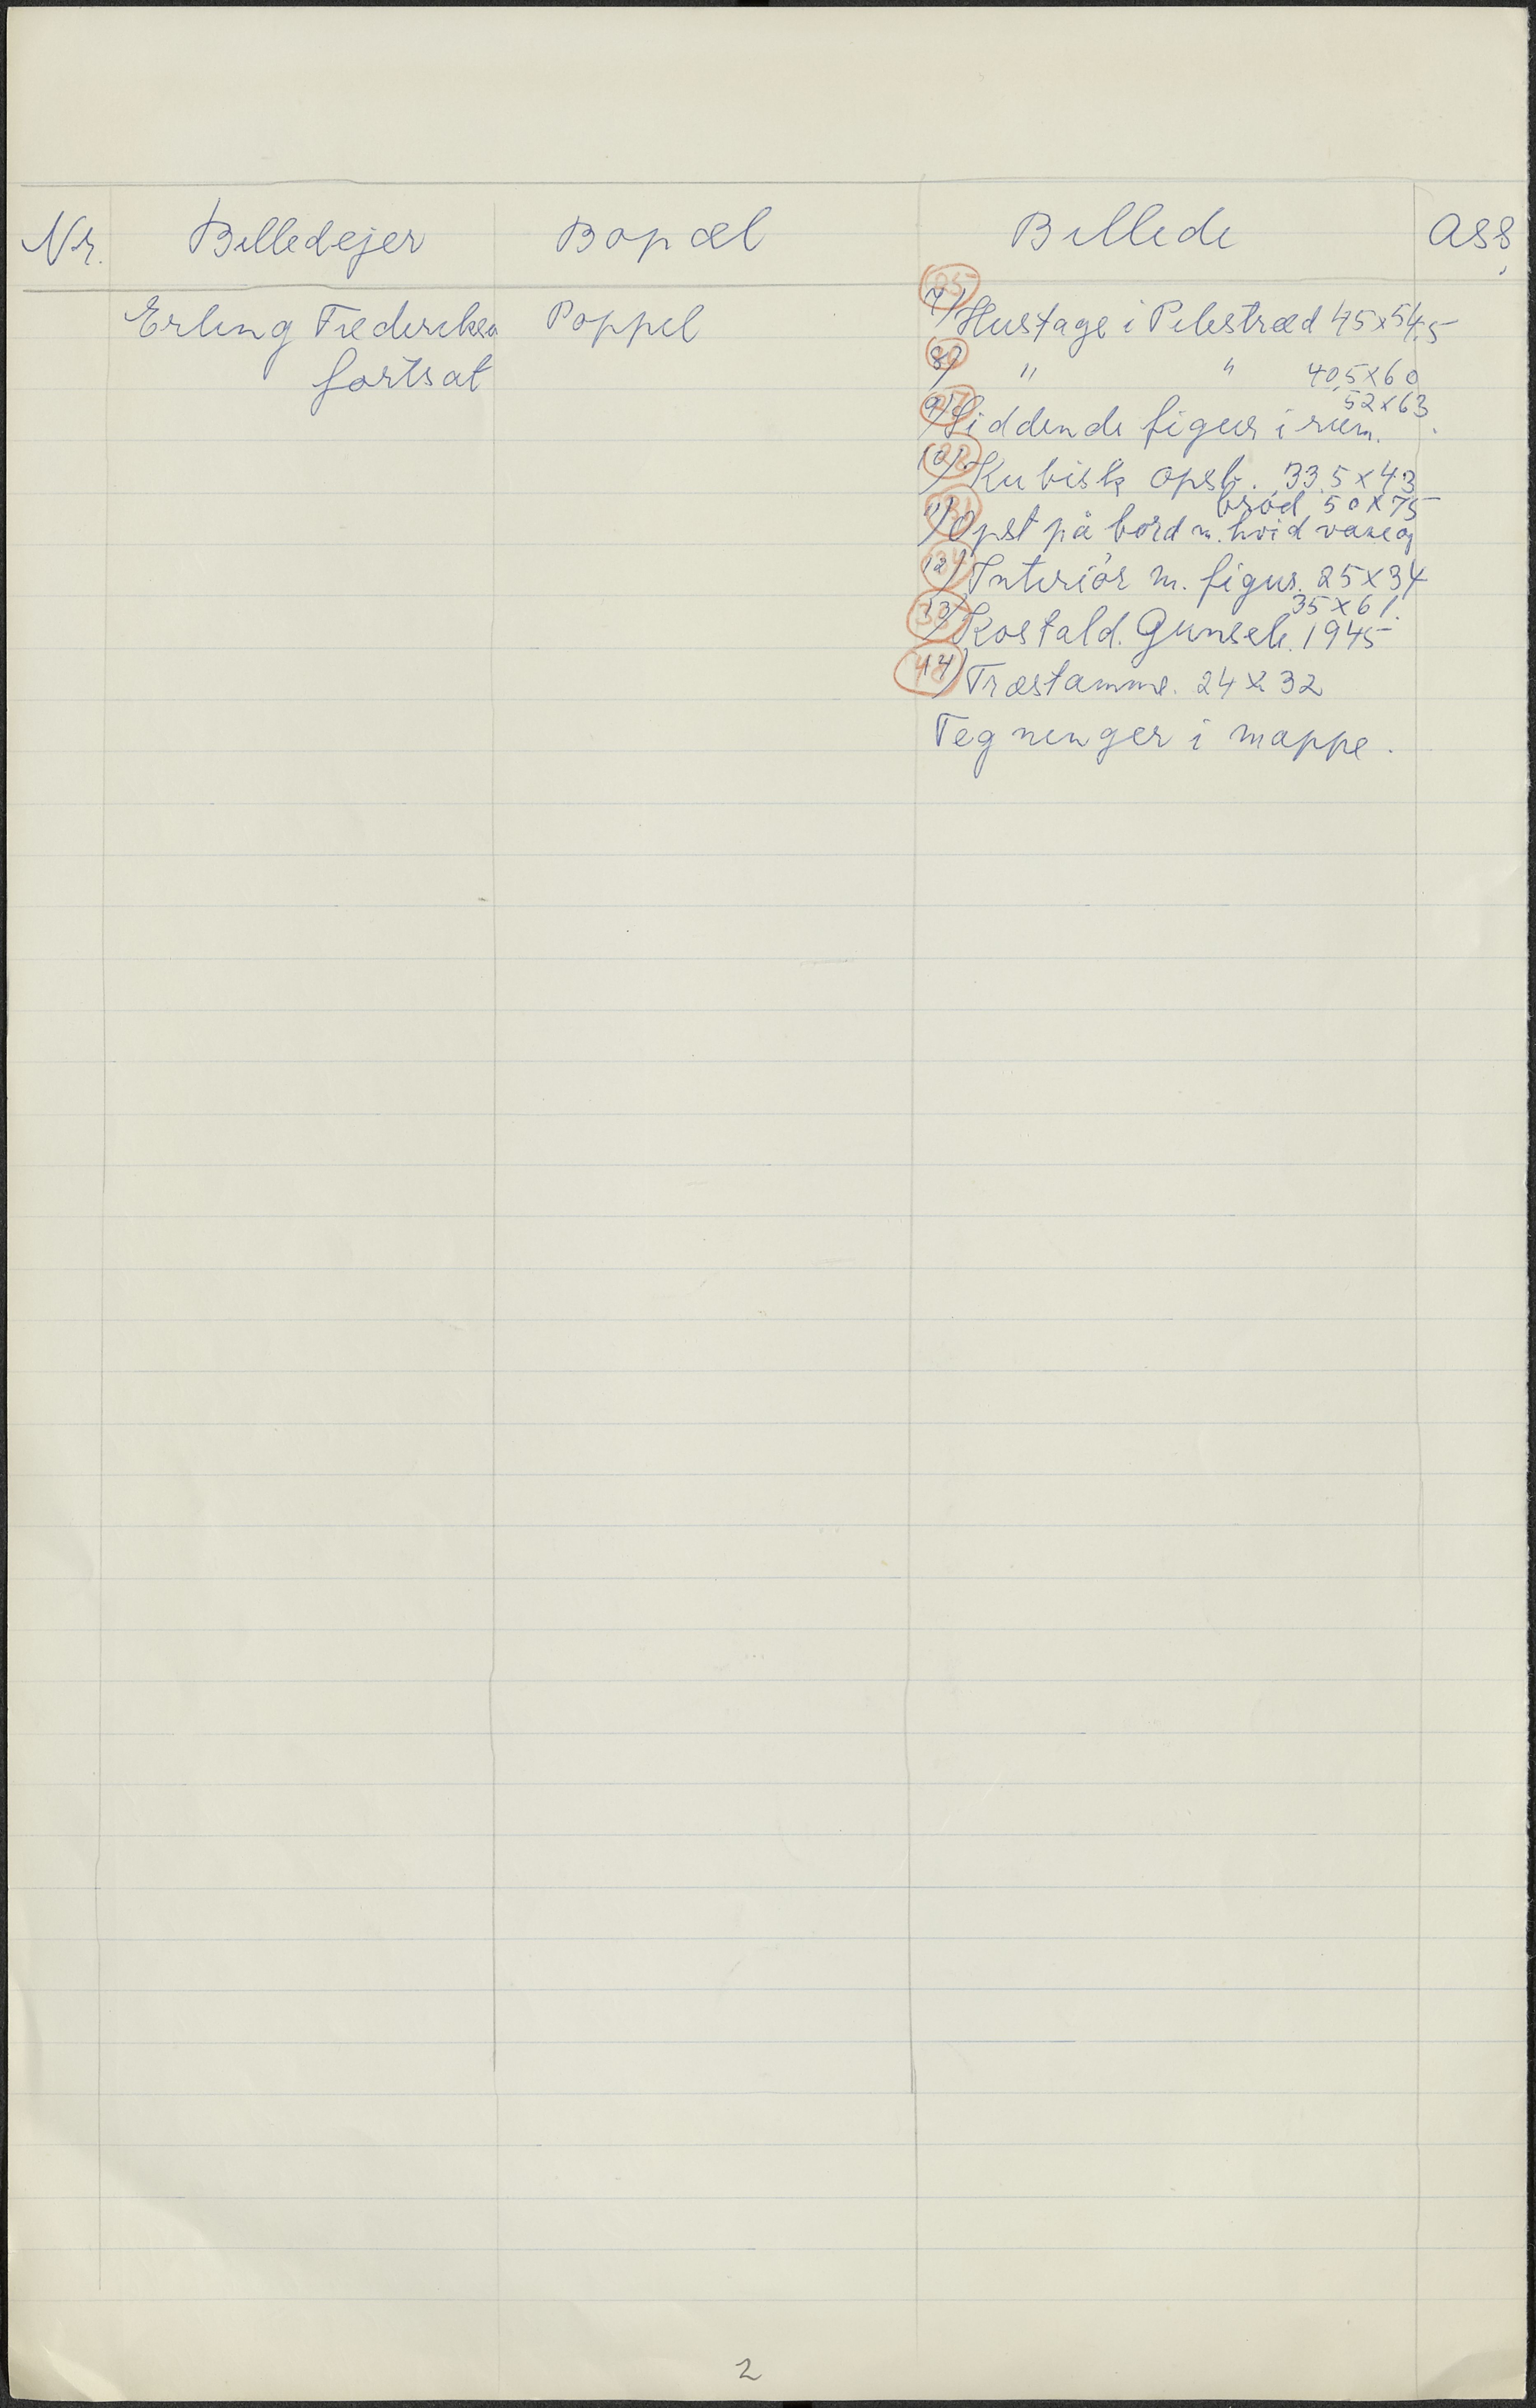 Nr. Billedejer Bopæl Billede Ass.
Erling Frederiksen Poppel 7) Hustage i Pilestræd 45x54,5
fortsat 8) " " 40,5x60
9) Siddende figur i rum. 52x63
10) Kubisk opst. 33,5x43
11) Opst på bord m. hvid vase og brød 50x75
12) Interiör m. figur. 25x34
13) Kostald. Gunseli. 1945 35x61.
14) Træstamme. 24x32
Tegninger i mappe.
2